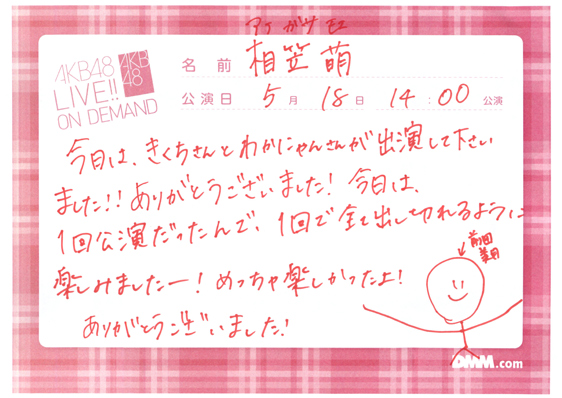 アイ ガサ モエ
AKB48
LIVE!!
ON DEMAND
AKB
48
名前 相笠萌
公演日 5月18日 14:00公演
今日は、きくちさんとわかにゃんさんが出演して下さい
ました!!ありがとうございました!今日は、
1回公演だったんで、1回で全て出し切れるように
楽しみましたー!めっちゃ楽しかったよ!
ありがとうございました!
前田
美月
DMM.com